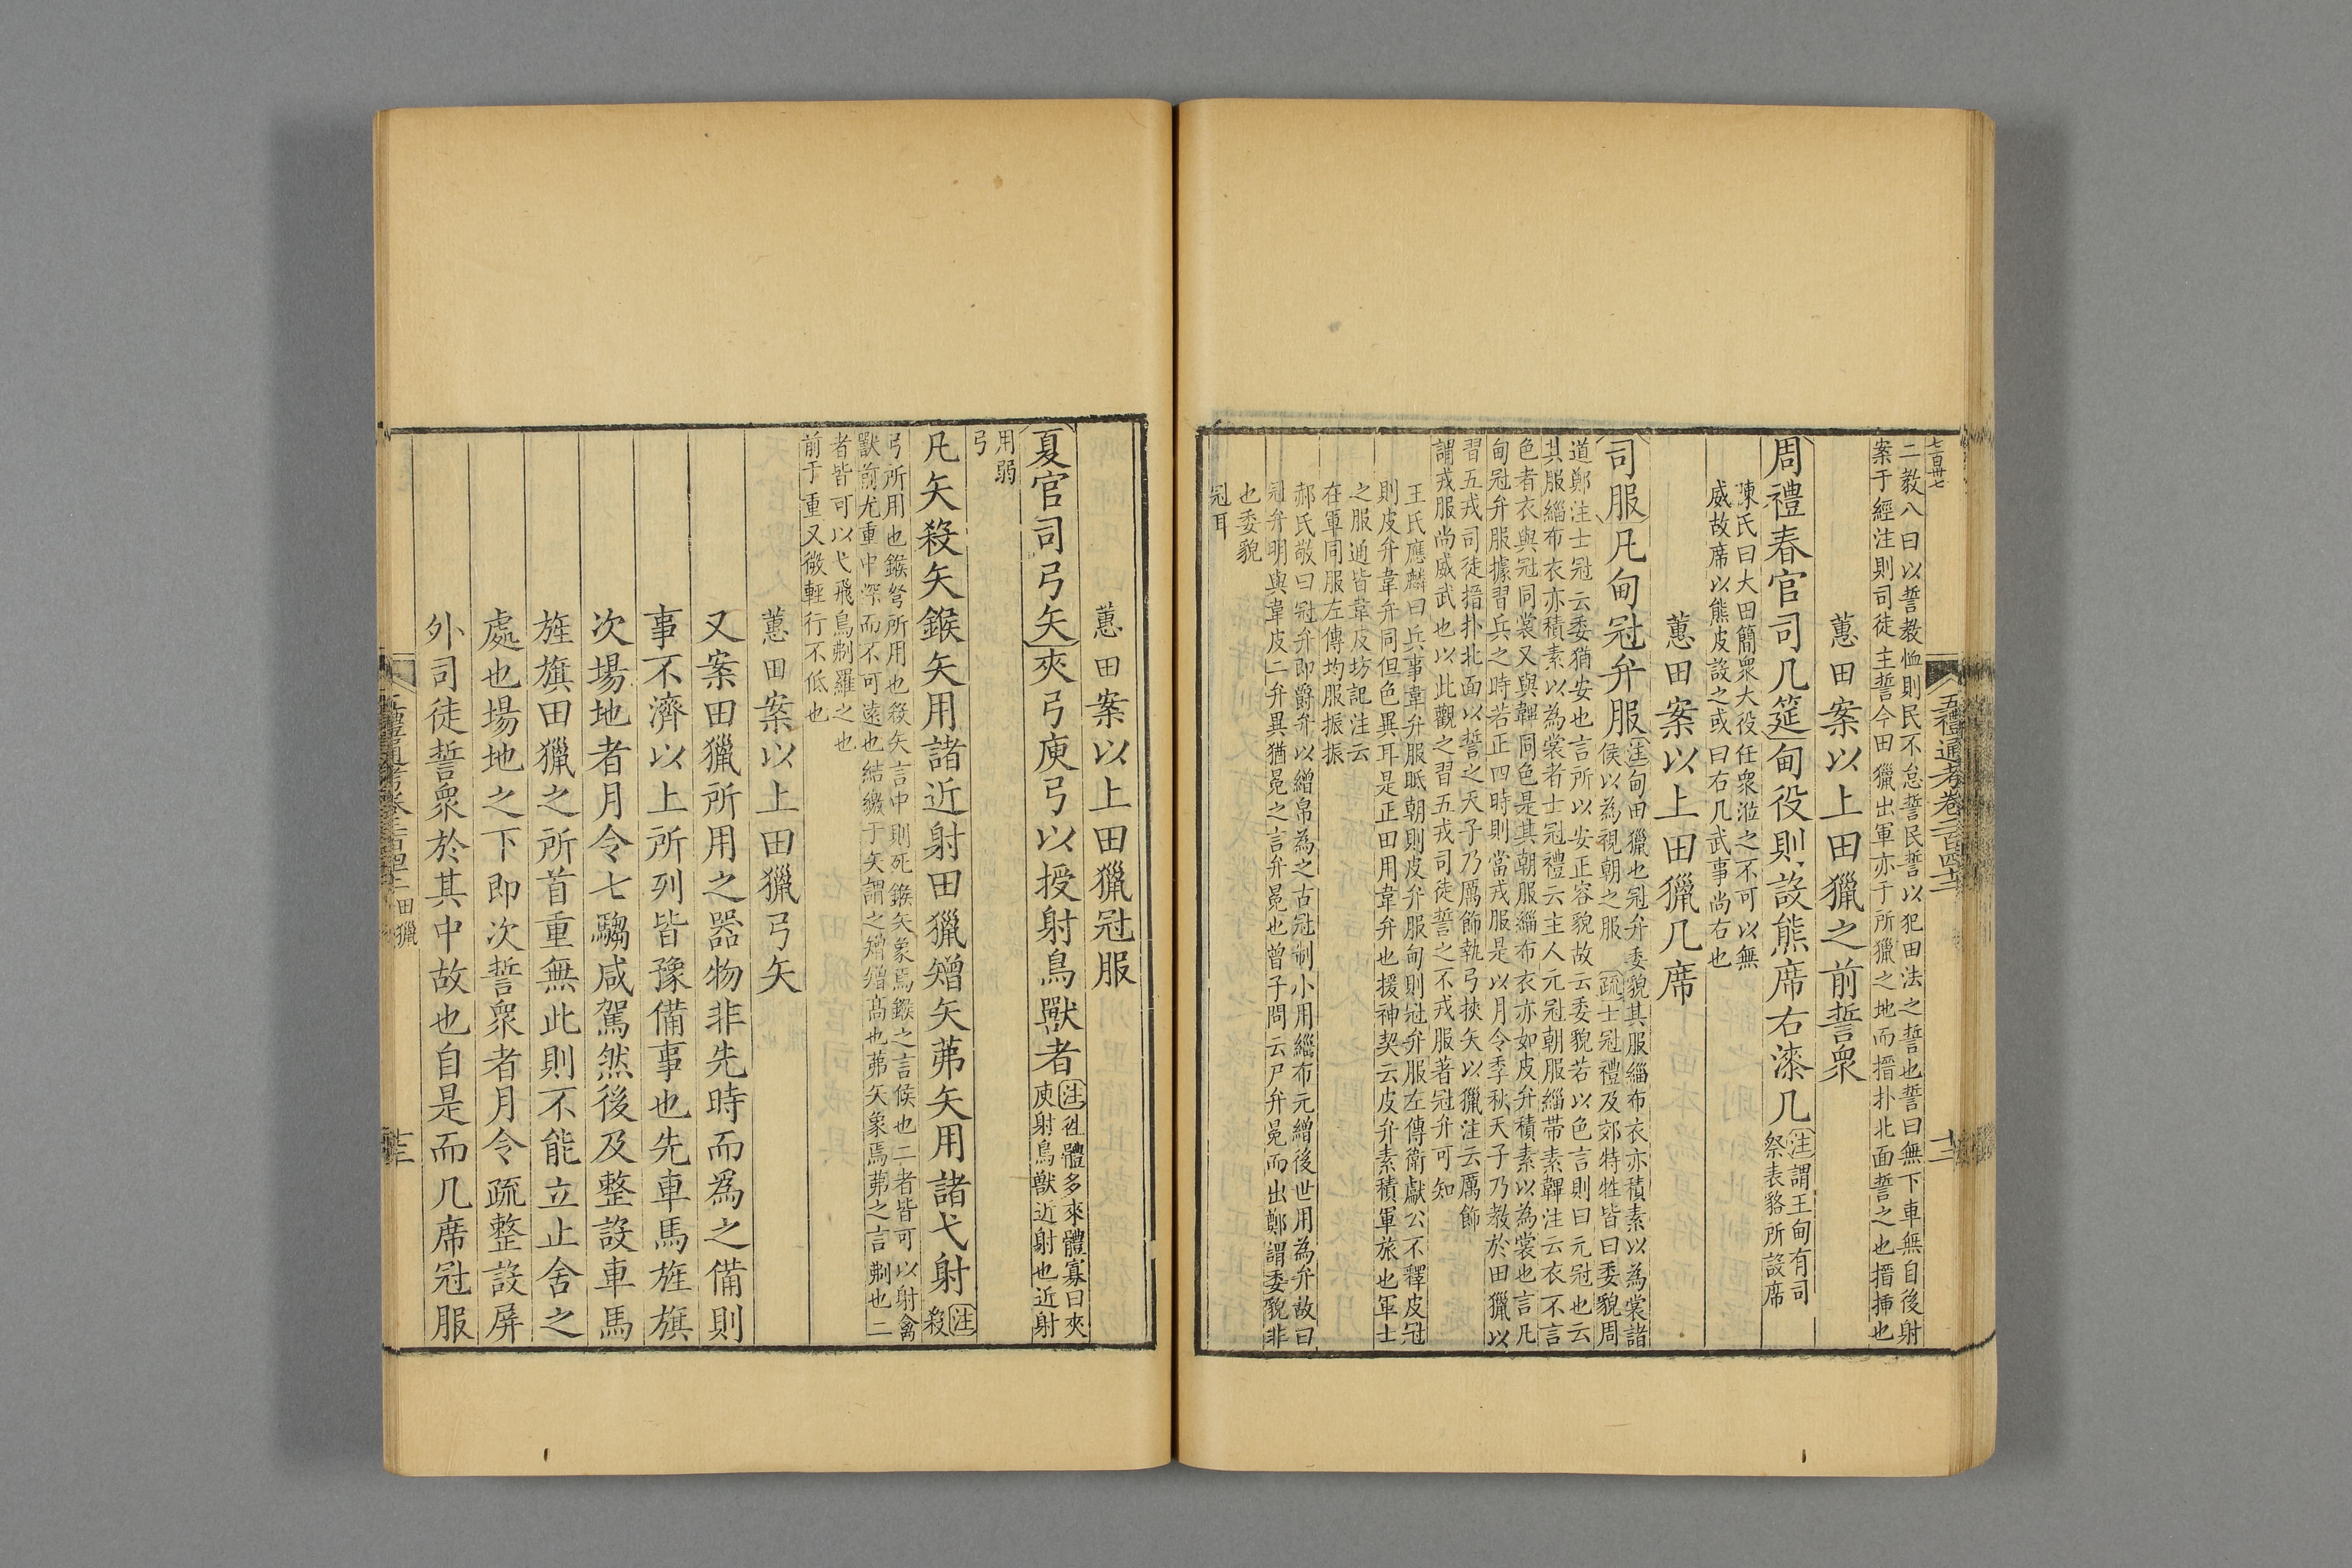 七百卅七
二敎八曰以誓教恤則民不怠誓民誓以犯田法之誓也誓曰無干車無自後射
案于經注則司徒主誓今田獵出軍亦于所獵之地而搢扑北面誓之也搢揷也
蕙田案以上田獵之前誓衆
周禮春官司几筵甸役則設熊席右漆几注謂王甸有司
祭表貉所設席
陳氏曰大田簡衆大役任衆涖之不可以無
威故席以熊皮設之或曰右几武事尚右也
蕙田案以上田獵几席
司服凡甸冠弁服注甸田獵也冠弁委貌其服緇布衣亦積素以為裳諸
侯以為視朝之服 疏士冠禮及郊特牲皆曰委貌周
道鄭注士冠云委猶安也言所以安正容貌故云委貌若以色言則曰元冠也云
其服緇布衣亦積素以為裳者士冠禮云主人元冠朝服緇帶素韠注云衣不言
色者衣與冠同裳又與韠同色是其朝服緇布衣亦如皮弁積素以為裳也言凡
甸冠弁服據習兵之時若正四時則當戎服是以月令季秋天子乃教於田獵以
習五戎司徒搢扑北面以誓之天子乃厲飾執弓挾矢以獵注云厲飾
謂戎服尚威武也以此觀之習五戎司徒誓之不戎服著冠弁可知
王氏應麟曰兵事韋弁服眡朝則皮弁服甸則冠弁服左傳衛獻公不釋皮冠
則皮弁韋弁同但色異耳是正田用韋弁也援神契云皮弁素積軍旅也軍士
之服通皆韋皮坊記注云
在軍同服左傳均服振振
郝氏敬曰冠弁即爵弁以繒帛為之古冠制小用緇布元繒後世用為弁故曰
冠弁明與韋皮二弁異猶冕之言弁冕也曾子問云尸弁冕而出鄭謂委貌非
也委貌
冠耳
五禮通考卷二百四十二
十二
蕙田案以上田獵冠服
夏官司弓矢夾弓庾弓以授射鳥獸者注徃體多來體寡曰夾
庾射鳥獸近射也近射
用弱
弓
凡矢殺矢鍭矢用諸近射田獵矰矢茀矢用諸弋射注
殺
弓所用也鍭弩所用也殺矢言中則死鍭矢象焉鍭之言候也二者皆可以射禽
獸前尤重中深而不可遠也結繳于矢謂之矰矰髙也茀矢象焉茀之言刜也二
者皆可以弋飛鳥刜羅之也
前于重又微輕行不低也
蕙田案以上田獵弓矢
又案田獵所用之器物非先時而爲之備則
事不濟以上所列皆豫備事也先車馬旌旗
次場地者月令七騶咸駕然後及整設車馬
旌旗田獵之所首重無此則不能立止舍之
處也場地之下即次誓衆者月令疏整設屏
外司徒誓衆於其中故也自是而几席冠服
五禮通考卷二百四十二田獵
十三